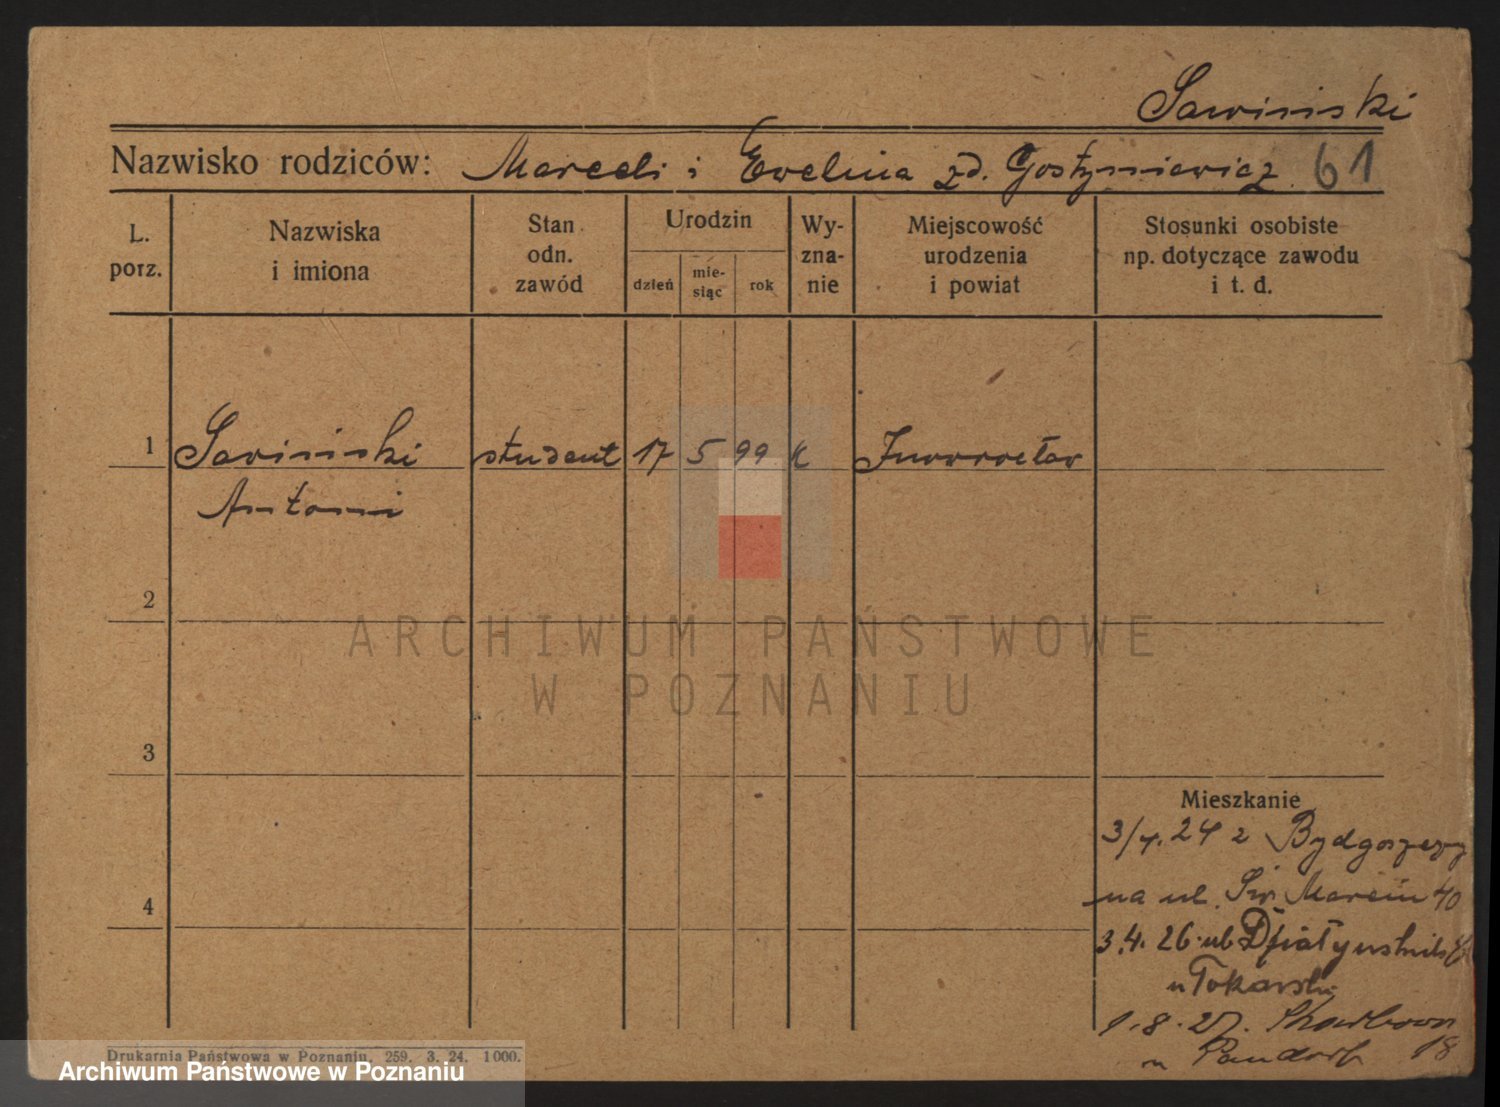 Sawinski
Nazwisko rodziców: Marceli i Ewelina zd. Gostyniewicz 61
L. porz.
Nazwiska i imiona
Stan odn. zawód
Urodzin
dzień
mie-siąc
rok
Wy-zna-nie
Miejscowość urodzenia i powiat
Stosunki osobiste np. dotyczące zawodu i t. d.
1 Sawinski student 17 5 99 k Inowrocław
Antoni
2
ARCHIWUM PAŃSTWOWE
W POZNANIU
3
Mieszkanie
3/4. 24 z Bydgoszczy
4
na ul. Św. Marcin 40
3.4. 26 ul. Działyńskich
u Tokarski
1.8.27. Skarbowa 18
u
Drukarnia Państwowa w Poznaniu, 259. 3. 24. 1000.
Archiwum Państwowe w Poznaniu